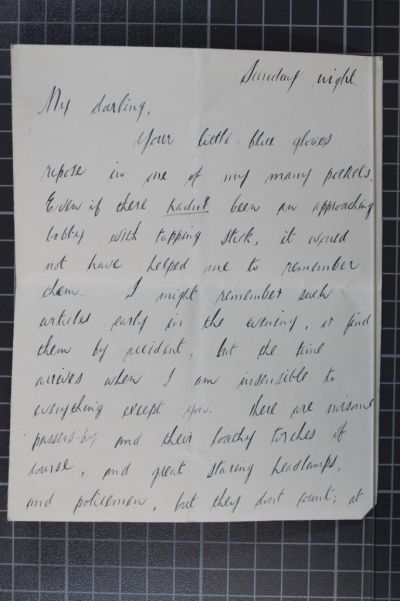 Sunday night.
My darling,
Your little blue gloves
repose in one of my many pockets.
Even if there hadn't been an approaching
bobby with tapping stick, it would
not have helped me to remember
them. I might remember such
articles early in the evening, or find
them by accident, but the time
arrives when I am insensible to
everything except you. There are
passers-by and their torches of
course, and great staring headlamps,
and policemen, but they don't count; at